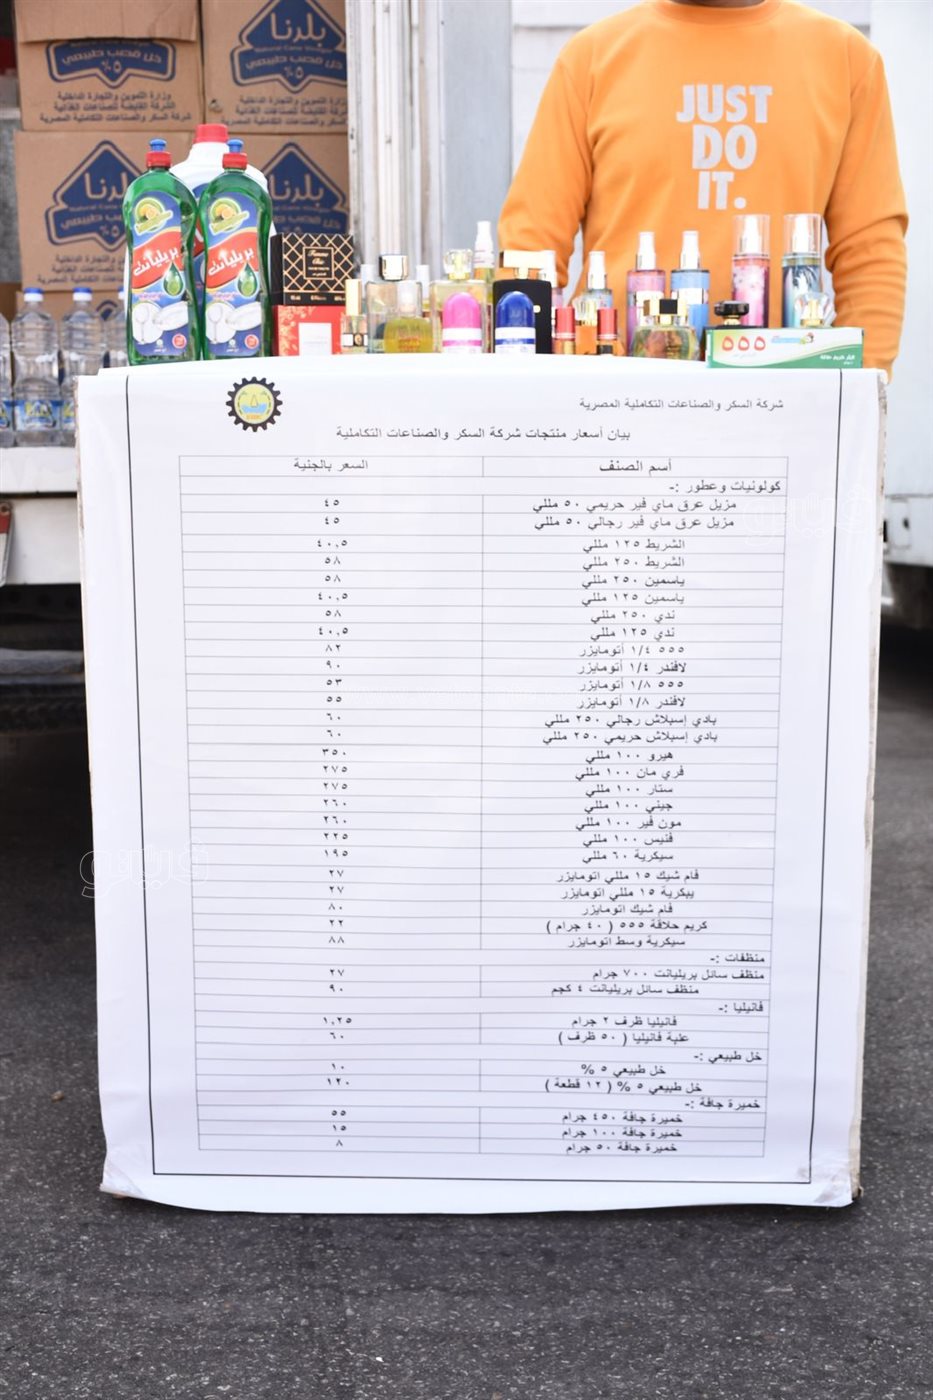 بلرنا
Natural Cane Vinegar
خل قصب طبيعي
٥%
وزارة التموين والتجارة الداخلية
الشركة القابضة للصناعات الغذائية
شركة السكر والصناعات التكاملية المصرية
بلرنا
Natural Cane Vinegar
خل قصب طبيعي
٥%
وزارة التموين والتجارة الداخلية
الشركة القابضة للصناعات الغذائية
شركة السكر والصناعات التكاملية المصرية
بلرنا
بلرنا
JUST
DO
IT.
بريليانت
بريليانت
٥٥٥
شركة السكر والصناعات التكاملية المصرية
بيان أسعار منتجات شركة السكر والصناعات التكاملية
أسم الصنف السعر بالجنية
كولونيات وعطور :-
مزيل عرق ماي فير حريمي ٥٠ مللي ٤٥
مزيل عرق ماي فير رجالي ٥٠ مللي ٤٥
الشريط ١٢٥ مللي ٤٠,٥
الشريط ٢٥٠ مللي ٥٨
ياسمين ٢٥٠ مللي ٥٨
ياسمين ١٢٥ مللي ٤٠,٥
ندي ٢٥٠ مللي ٥٨
ندي ١٢٥ مللي ٤٠,٥
٥٥٥ ١/٤ أتومايزر ٨٢
لافندر ١/٤ أتومايزر ٩٠
٥٥٥ ١/٨ أتومايزر ٥٣
لافندر ١/٨ أتومايزر ٥٥
بادي إسبلاش رجالي ٢٥٠ مللي ٦٠
بادي إسبلاش حريمي ٢٥٠ مللي ٦٠
هيرو ١٠٠ مللي ٣٥٠
فري مان ١٠٠ مللي ٢٧٥
ستار ١٠٠ مللي ٢٧٥
جيني ١٠٠ مللي ٢٦٠
مون فير ١٠٠ مللي ٢٦٠
فنيس ١٠٠ مللي ٢٢٥
سيكرية ٦٠ مللي ١٩٥
فام شيك ١٥ مللي اتومايزر ٢٧
يبكرية ١٥ مللي اتومايزر ٢٧
فام شيك اتومايزر ٨٠
كريم حلاقة ٥٥٥ ( ٤٠ جرام ) ٢٢
سيكرية وسط اتومايزر ٨٨
منظفات :-
منظف سائل بريليانت ٧٠٠ جرام ٢٧
منظف سائل بريليانت ٤ كجم ٩٠
فانيليا :-
فانيليا ظرف ٢ جرام ١,٢٥
علبة فانيليا ( ٥٠ ظرف ) ٦٠
خل طبيعي :-
خل طبيعي ٥ % ١٠
خل طبيعي ٥ % ( ١٢ قطعة ) ١٢٠
خميرة جافة :-
خميرة جافة ٤٥٠ جرام ٥٥
خميرة جافة ١٠٠ جرام ١٥
خميرة جافة ٥٠ جرام ٨
ڤيتو
ڤيتو